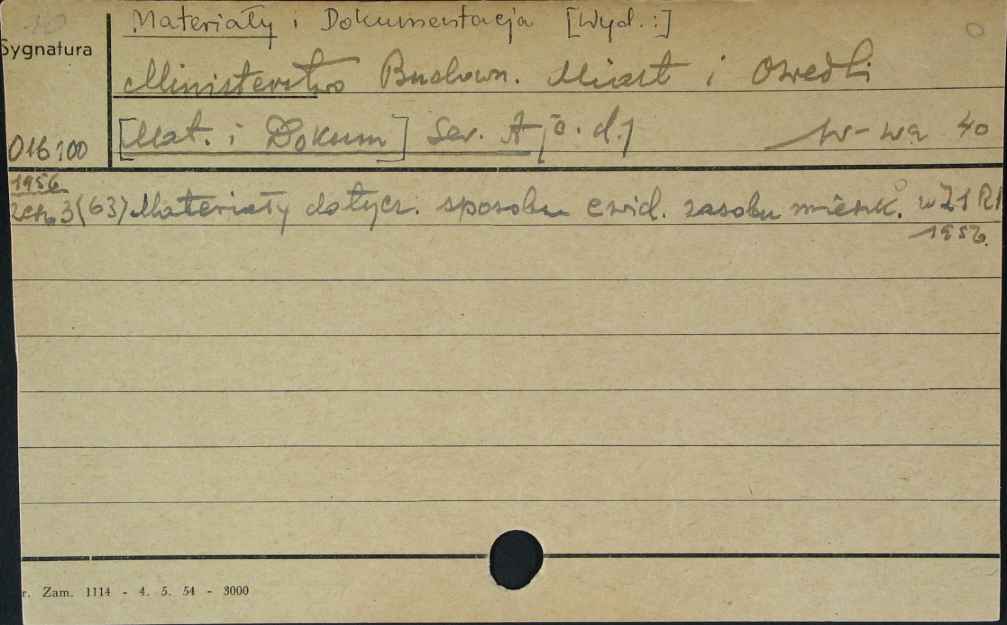 Materiały i Dokumentacja [Wyd.:]
Sygnatura
Ministerstwo Budown. Miast i Osiedli
016100 [Mat. i Dokum] Ser. A [o. d.] W-wa 40
1956
zesz. 3(63) Materiały dotycz. sposobu ewid. zasobu mieszk. w Z1 R1
1956.
r. Zam. 1114 - 4. 5. 54 - 3000